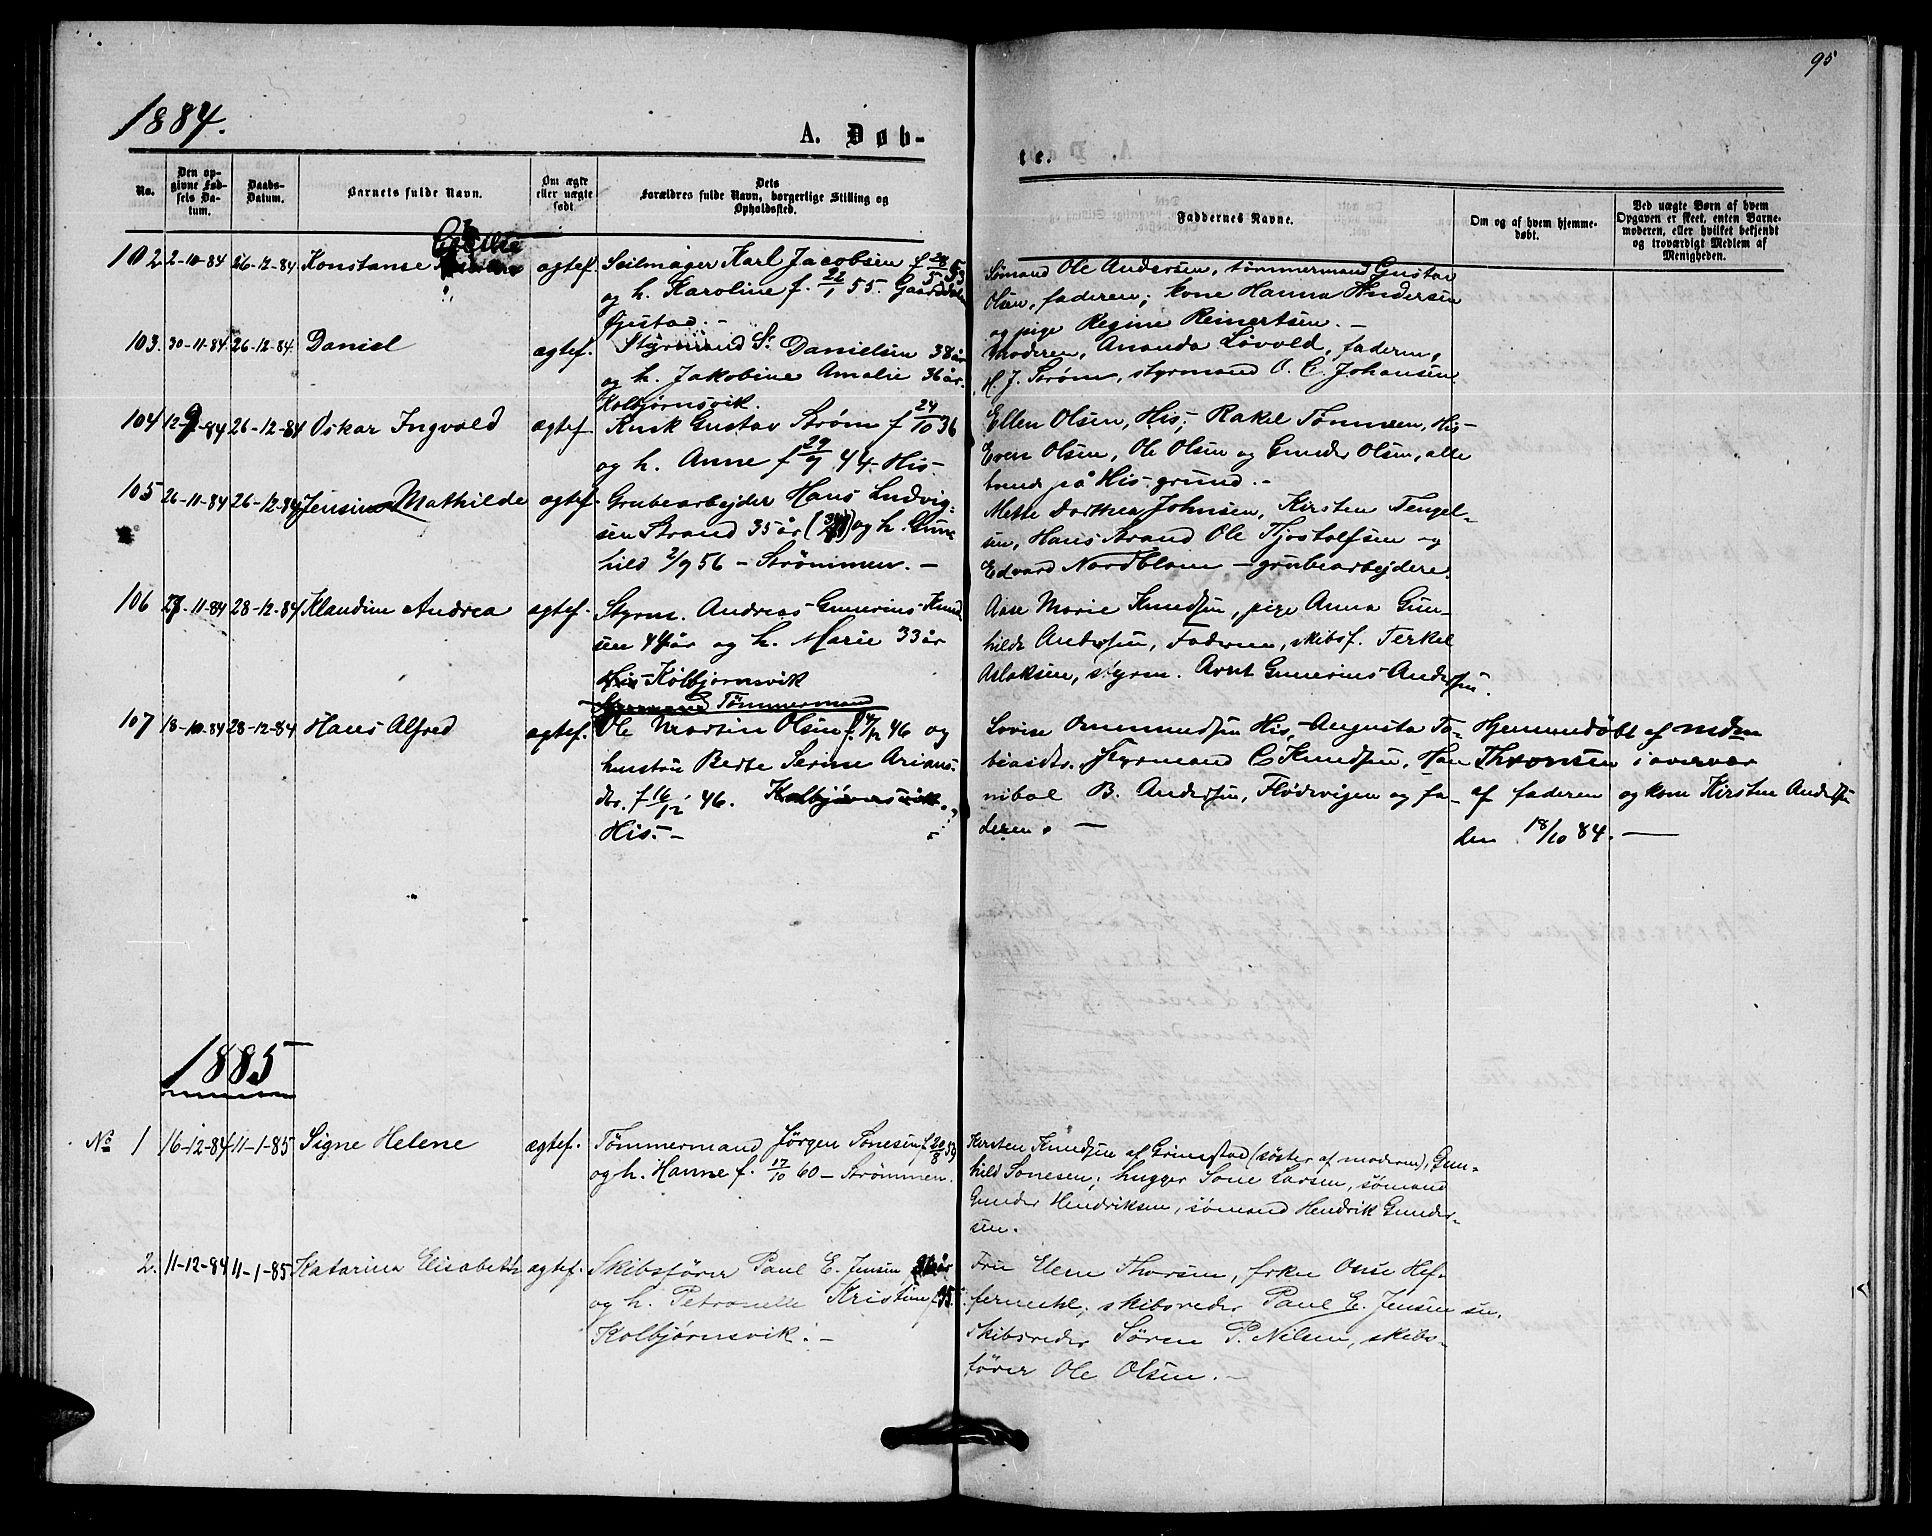 95
1884.
A. Døb-
te.
No.
Den op-
givne Fød-
sels Da-
tum.
Daabs-
Datum.
Barnets fulde Navn.
Om ægte
eller uægte
født.
Dets
Forældres fulde Navn, borgerlige Stilling og
Opholdssted.
Faddernes Navne.
Om og af hvem hjemme-
døbt.
Ved uægte Børn af hvem
Opgaven er skeet, enten Barne-
moderen, eller hvilket bekjendt
og troværdigt Medlem af
Menigheden.
Cecilie
102 2-10-84 26-12-84 Konstanse ægtef. Seilmager Karl Jacobsen f 28/5 53
og h. Karoline f. 22/1 55. Gaasedalen
Øjestad. -
Sømand Ole Andersen, tømmermand Gustav
Olsen, faderen; kone Hanna Andersen
og pige Regine Reinertsen. -
103. 30-11-84 26-12-84. Daniel ægtef. Styrmand S. Danielsen 38 år
og h. Jakobine Amalie 36 år.
Kolbjørnsvik.
Moderen, Ananda Løvold, faderen,
H. J. Strøm, styrmand O. C. Johansen
104 12-9-84 26-12-84 Oskar Ingvald ægtef. Kusk Gustav Strøm f 24/10 36
og h. Anne f 29/9 44 - His -
Ellen Olsen, His; Rakel Tønnesen, His -
Even Olsen, Ole Olsen og Gunder Olsen, alle
boende på His-grund. -
105 26-11-84 26-12-84 Jensine Mathilde ægtef. Grubearbejder Hans Ludvig-
sen Strand 35 år og h. Gun-
hild 2/9 56 - Strømmen. -
Mette Dorthea Johnsen, Kirsten Tengel-
sen, Hans Strand Ole Tjostolfsen og
Edvard Nordblom - grubearbejdere.
106 27-11-84 28-12-84 Klaudine Andrea ægtef. Styrm. Andreas Gunerius Knud-
sen 44 år og h. Marie 33 år
His Kolbjørnsvik
Aase Marie Knudsen, pige Anna Gun-
hilde Andersen, Faderen, skibsf. Terkel
Aslaksen, styrm. Arnt Gunerius Andersen.
Styrmand Tømmermand
107 18-10-84 28-12-84 Hans Alfred ægtef. Ole Martin Olsen f. 14/12 46 og
hustru Berte Serine Arians-
dtr. f 16/12 46. Kolbjørnsvik.
His. -
Lovise Ommundsen His, Augusta To-
biasdtr. Styrmand C Knudsen, Han
nibal B. Andersen, Flødevigen og fa-
deren. -
Hjemmedøbt af mdm
Thronsen i overvær
af faderen og kone Kirsten Andersen
den 18/10 84. -
1885
No 1 16-12-84 11-1-85 Signe Helene ægtef. Tømmermand Jørgen Sonesen f. 20/8 59
og h. Hanne f. 17/10 60 - Strømmen.
Kirsten Knudsen af Grimstad (søster af moderen), Gun-
hild Sonesen; hugger Sone Larsen, sømand
Gunder Hendriksen, sømand Hendrik Gunder-
sen.
2. 11-12-84 11-1-85 Katarina Elisabeth ægtef. Skibsfører Paul E. Jensen år
og h. Petronelle Kristine 35
Kolbjørnsvik. -
Fru Elen Thorsen, frkn Onse Hef-
fermehl, skibsreder Paul E. Jensen sen.
Skibsreder Søren P. Nelsen, skibs-
fører Ole Olsen. -